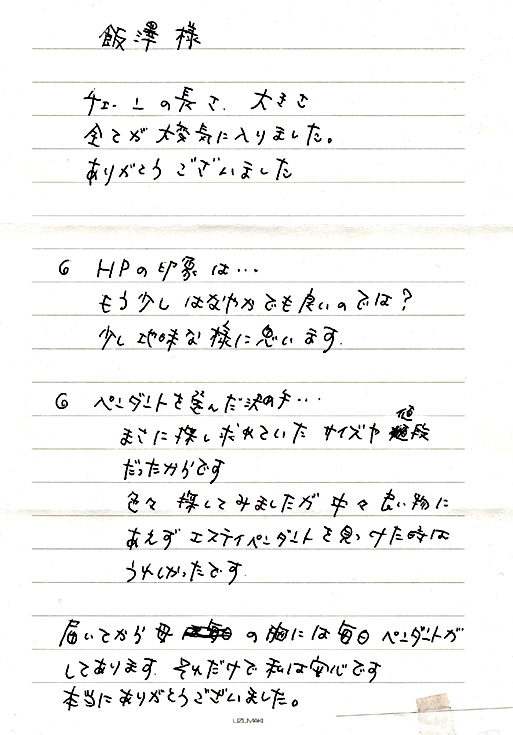 飯澤 様
チェーンの長さ、大きさ
全てが大変気に入りました。
ありがとうございました
6 HPの印象は…
もう少しはなやかでも良いのでは？
少し地味な様に思います.
6 ペンダントを選んだ決め手…
まさに探し求れていたサイズや値段
だったからです
色々探してみましたが中々良い物に
あえずエステイペンダントを見つけた時は
うれしかったです.
届いてから母の胸には毎日ペンダントが
してあります.それだけで私は安心です
本当にありがとうございました。
UZUMAKI